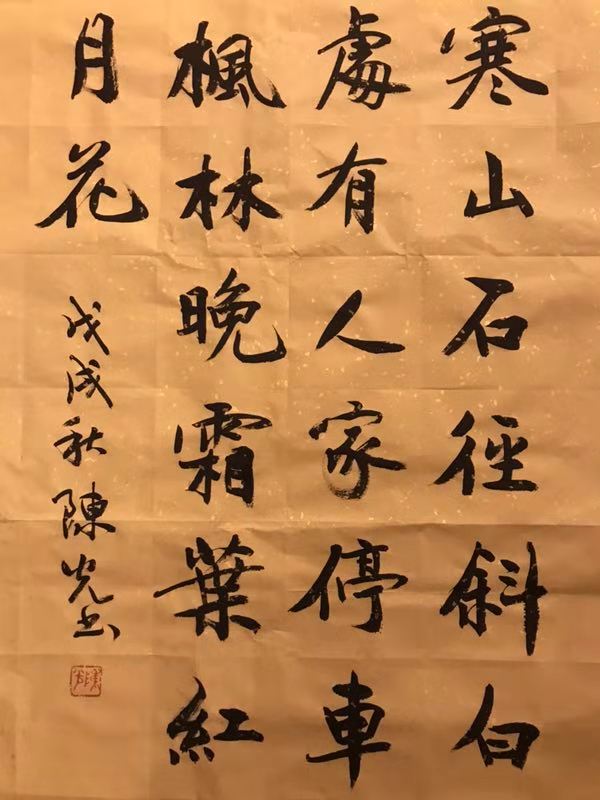 寒山石徑斜白
處有人家停車
楓林晚霜葉紅
月花
戊戌秋陳光书